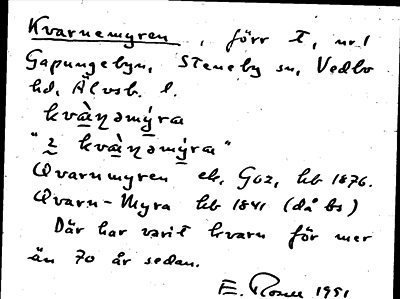 Kvarnemyren, förr t, nr 1
Gapungebyn, Steneby sn, Vedbo
hd, Älvsb. l.
kvàɳəmýra
"2 kvàɳəmýra"
Qvarnmyren ek, Goz, hb 1876.
Qvarn-Myra hb 1841 (då bs)
Där har varit kvarn för mer
än 70 år sedan.
E. Rosell 1951